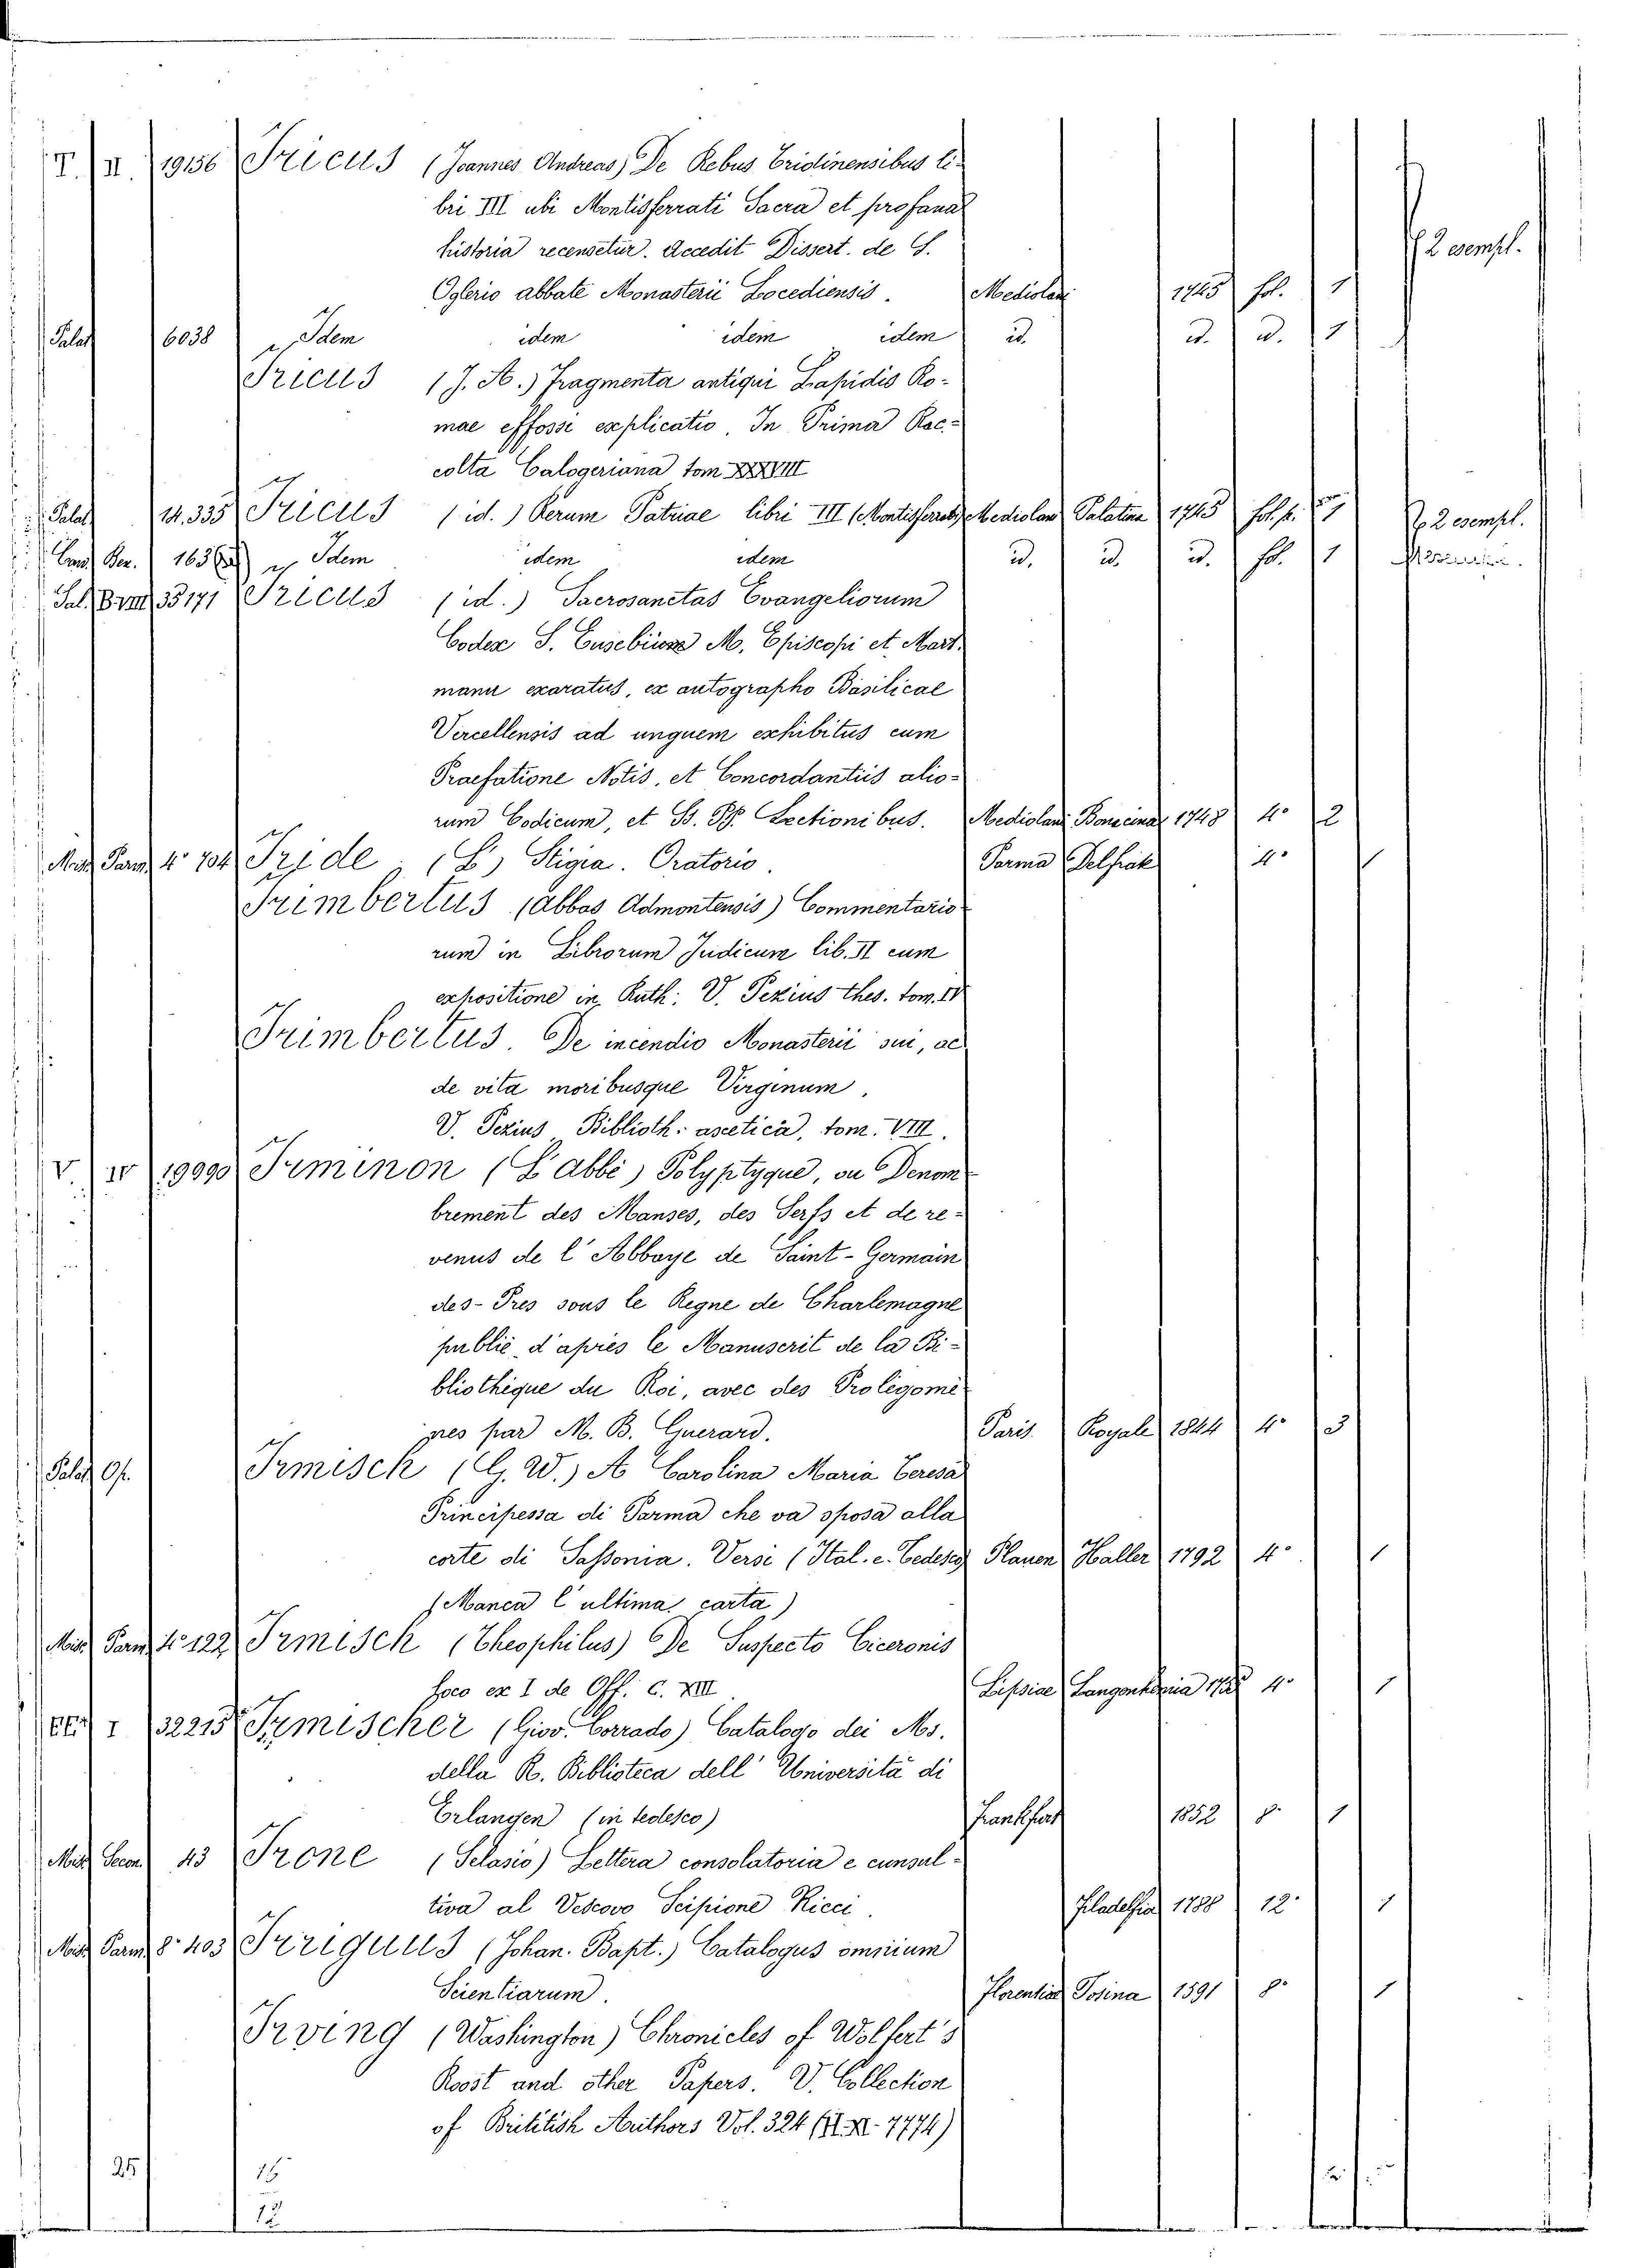 T. II. 19156 Iricus (Joannes Andreas) De Rebus Tridinensibus li-
bri III ubi Montisferrati Sacra et profana
historia recensetur. Accedit Dissert. de S. 2 esempl.
Oglerio abbate Monasterii Locediensis. Mediolani 1745 fol. 1
Palat 6038 " Idem idem idem idem id. id. id. 1
Iricus (J. A.) Fragmenta antiqui Lapidis Ro-
mae effossi explicatio. In Prima Rac-
colta Calogeriana tom XXXVIII
Palat 14.335 Iricus (id.) Rerum Patriae libri III (Montisferrati) Mediolani Palatina 1745 fol. p. 1 2 esempl.
Cons. Ber. 1636 " Idem idem idem id. id. id. fol. 1
Sal. B VIII 35171 Iricus (id.) Sacrosanctus Evangeliorum
Codex S. Eusebius M. Episcopi et Mart.
manu exaratus, ex autographo Basilicae
Vercellensis ad unguem exhibitus cum
Praefatione Notis, et Concordantiis alio-
rum Codicum, et SS. PP. Lectionibus. Mediolani Bonacinae 1748 4° 2
Misc. Parm. 4° 704 Iride (L') Stigia. Oratorio. Parma Delfiati 4° 1
Irimbertus (Abbas Admontensis) Commentario-
rum in Librorum Judicum lib. II cum
expositione in Ruth: V. Pezius thes. tom. IV
Irimbertus. De incendio Monasterii sui, ac
de vita moribusque Virginum.
V. Pezius Biblioth: ascetica, tom. VIII.
V. IV 19090 Irminon (L'abbé) Polyptyque, ou Denom-
brement des Manses, des Serfs et de re-
venus de l'Abbaye de Saint-Germain
des-Pres sous le Regne de Charlemagne
publié d'après le Manuscrit de la Bi-
bliothèque du Roi, avec des Prolégomè-
nes par M. B. Guerard. Paris. Royale 1844 4° 3
Palat Op. Irmisch (G. W.) A Carolina Maria Teresa
Principessa di Parma che va sposa alla
corte di Sassonia. Versi (Ital. e Tedeschi) Plauen Haller 1792 4° 1
(Manca l'ultima carta)
Misc. Parm. 4° 122 Irmisch (Theophilus) De Suspecto Ciceronis
loco ex I de Off. c. XIII Lipsiae Langenhemia 4° 1
I 32215 Irmischer (Giov. Corrado) Catalogo dei Ms.
della R. Biblioteca dell' Università di
Erlangen (in tedesco) Frankfurt 1852 8° 1
Misc. Secon. 43 Irone (Selasio) Lettera consolatoria e cunsul-
tiva al Vescovo Scipione Ricci. Filadelfia 1788 12° 1
Misc. Parm. 8° 403 Irriguus (Johan. Bapt.) Catalogus omnium
Scientiarum. Florentiae Tosina 1591 8° 1
Irving (Washington) Chronicles of Wolfert's
Roost and other Papers. V. Collection
of Brititish Authors Vol. 324 (II. XI. 7774)
25 15
12